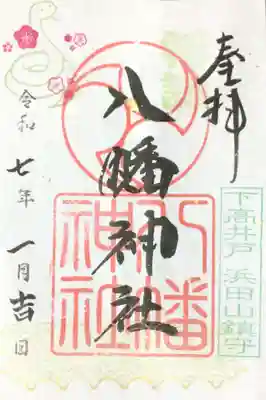 奉拝
下高井戸 浜田山鎮守
八幡神社
八幡
神社
令和七年 一月吉日